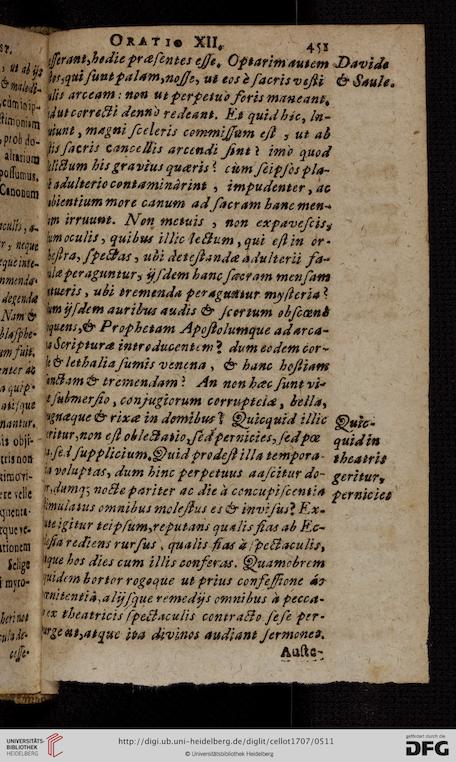 ORATIO XII.
451
sserant,hodie præsentes esse. Optarim autem
Davide
os,qui sunt palam,nosse, ut eos è sacris vesti
& Saule.
lis arceam: non ut perpetuo foris maneant,
d ut correcti denuò redeant. Et quid hic, in-
iunt, magni sceleris commissum est, ut ab
iis sacris cancellis arcendi sint? imò quod
lictum his gravius quæris? cùm seipsos pla-
adulterio contaminârint, impudenter, ac
bientium more canum ad sacram hanc men-
m irruunt. Non metuis, non expavescis,
um oculis, quibus illic lectum, qui est in or-
estra, spectas, ubi detestandæ adulterii fa-
læ peraguntur, ijsdem hanc sacram mensam
tueris, ubi tremenda peraguntur mysteria?
um ijsdem auribus audis & scortum obscænè
quens,& Prophetam Apostolumque ad arca-
a Scripturæ introducentem? dum eodem cor-
e & lethalia sumis venena, & hanc hostiam
nctam & tremendam? An non hæc sunt vi-
t submersio, conjugiorum corruptelæ, bella,
gnæque & rixæ in domibus? Quicquid illic
Quic-
ritur,non est oblectatio,sed pernicies,sed pœ
quid in
,sed supplicium. Quid prodest illa tempora-
theatris
a voluptas, dum hinc perpetuus nascitur do-
geritur,
r,dumq; nocte pariter ac die à concupiscentia
pernicies
imulatus omnibus molestus es & invisus? Ex-
te igitur teipsum,reputans qualis fias ab Ec-
lesia rediens rursus, qualis fias à spectaculis,
que hos dies cum illis conferas. Quamobrem
quidem hortor rogoque ut prius confessione ac
ænitentiâ, alijsque remedijs omnibus à pecca-
ex theatricis spectaculis contracto sese per-
urgeat,atque ita divinos audiant sermones.
Auste-
UNIVERSITÄTS-
BIBLIOTHEK
HEIDELBERG
http://digi.ub.uni-heidelberg.de/diglit/cellot1707/0511
© Universitätsbibliothek Heidelberg
gefördert durch die
DFG